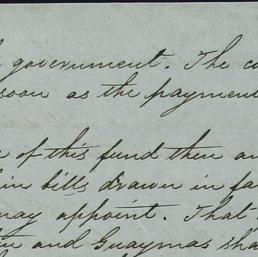 government. The
soon as the payment
of this fund then
bills drawn in
may appoint. That
and Guaymas